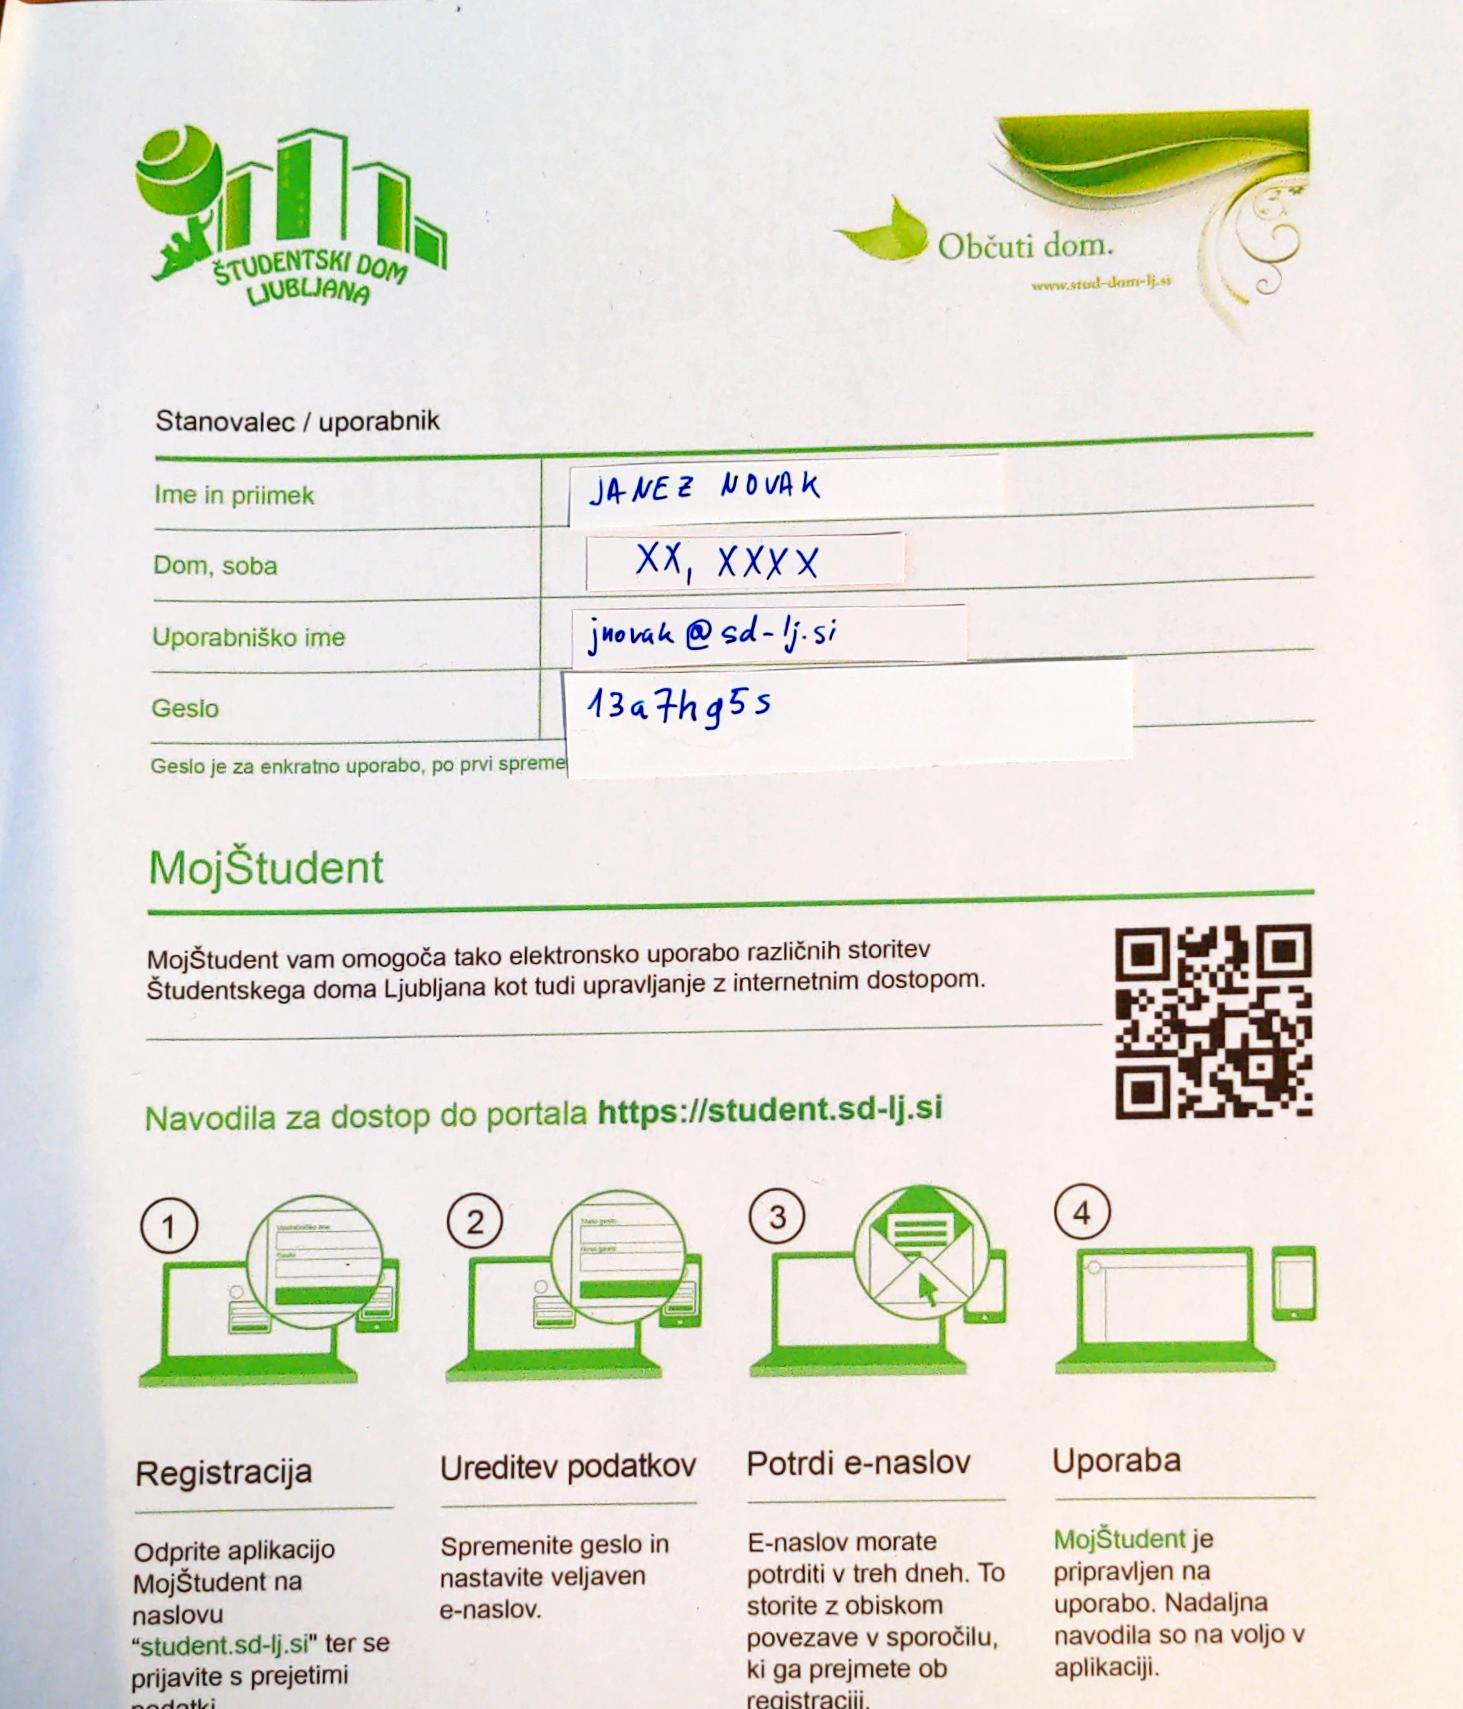 ŠTUDENTSKI DOM
LJUBLJANA
Občuti dom.
www.stud-dom-lj.si
Stanovalec / uporabnik
Ime in priimek
JANEZ NOVAK
Dom, soba
XX, XXXX
Uporabniško ime
jnovak@sd-lj.si
Geslo
13a7hg5s
Geslo je za enkratno uporabo, po prvi spreme
MojŠtudent
MojŠtudent vam omogoča tako elektronsko uporabo različnih storitev
Študentskega doma Ljubljana kot tudi upravljanje z internetnim dostopom.
Navodila za dostop do portala https://student.sd-lj.si
1
Uporabniško ime
Geslo
2
Staro geslo
Novo geslo
3
4
Registracija
Odprite aplikacijo
MojŠtudent na
naslovu
“student.sd-lj.si" ter se
prijavite s prejetimi
podatki
Ureditev podatkov
Spremenite geslo in
nastavite veljaven
e-naslov.
Potrdi e-naslov
E-naslov morate
potrditi v treh dneh. To
storite z obiskom
povezave v sporočilu,
ki ga prejmete ob
registraciji.
Uporaba
MojŠtudent je
pripravljen na
uporabo. Nadaljna
navodila so na voljo v
aplikaciji.